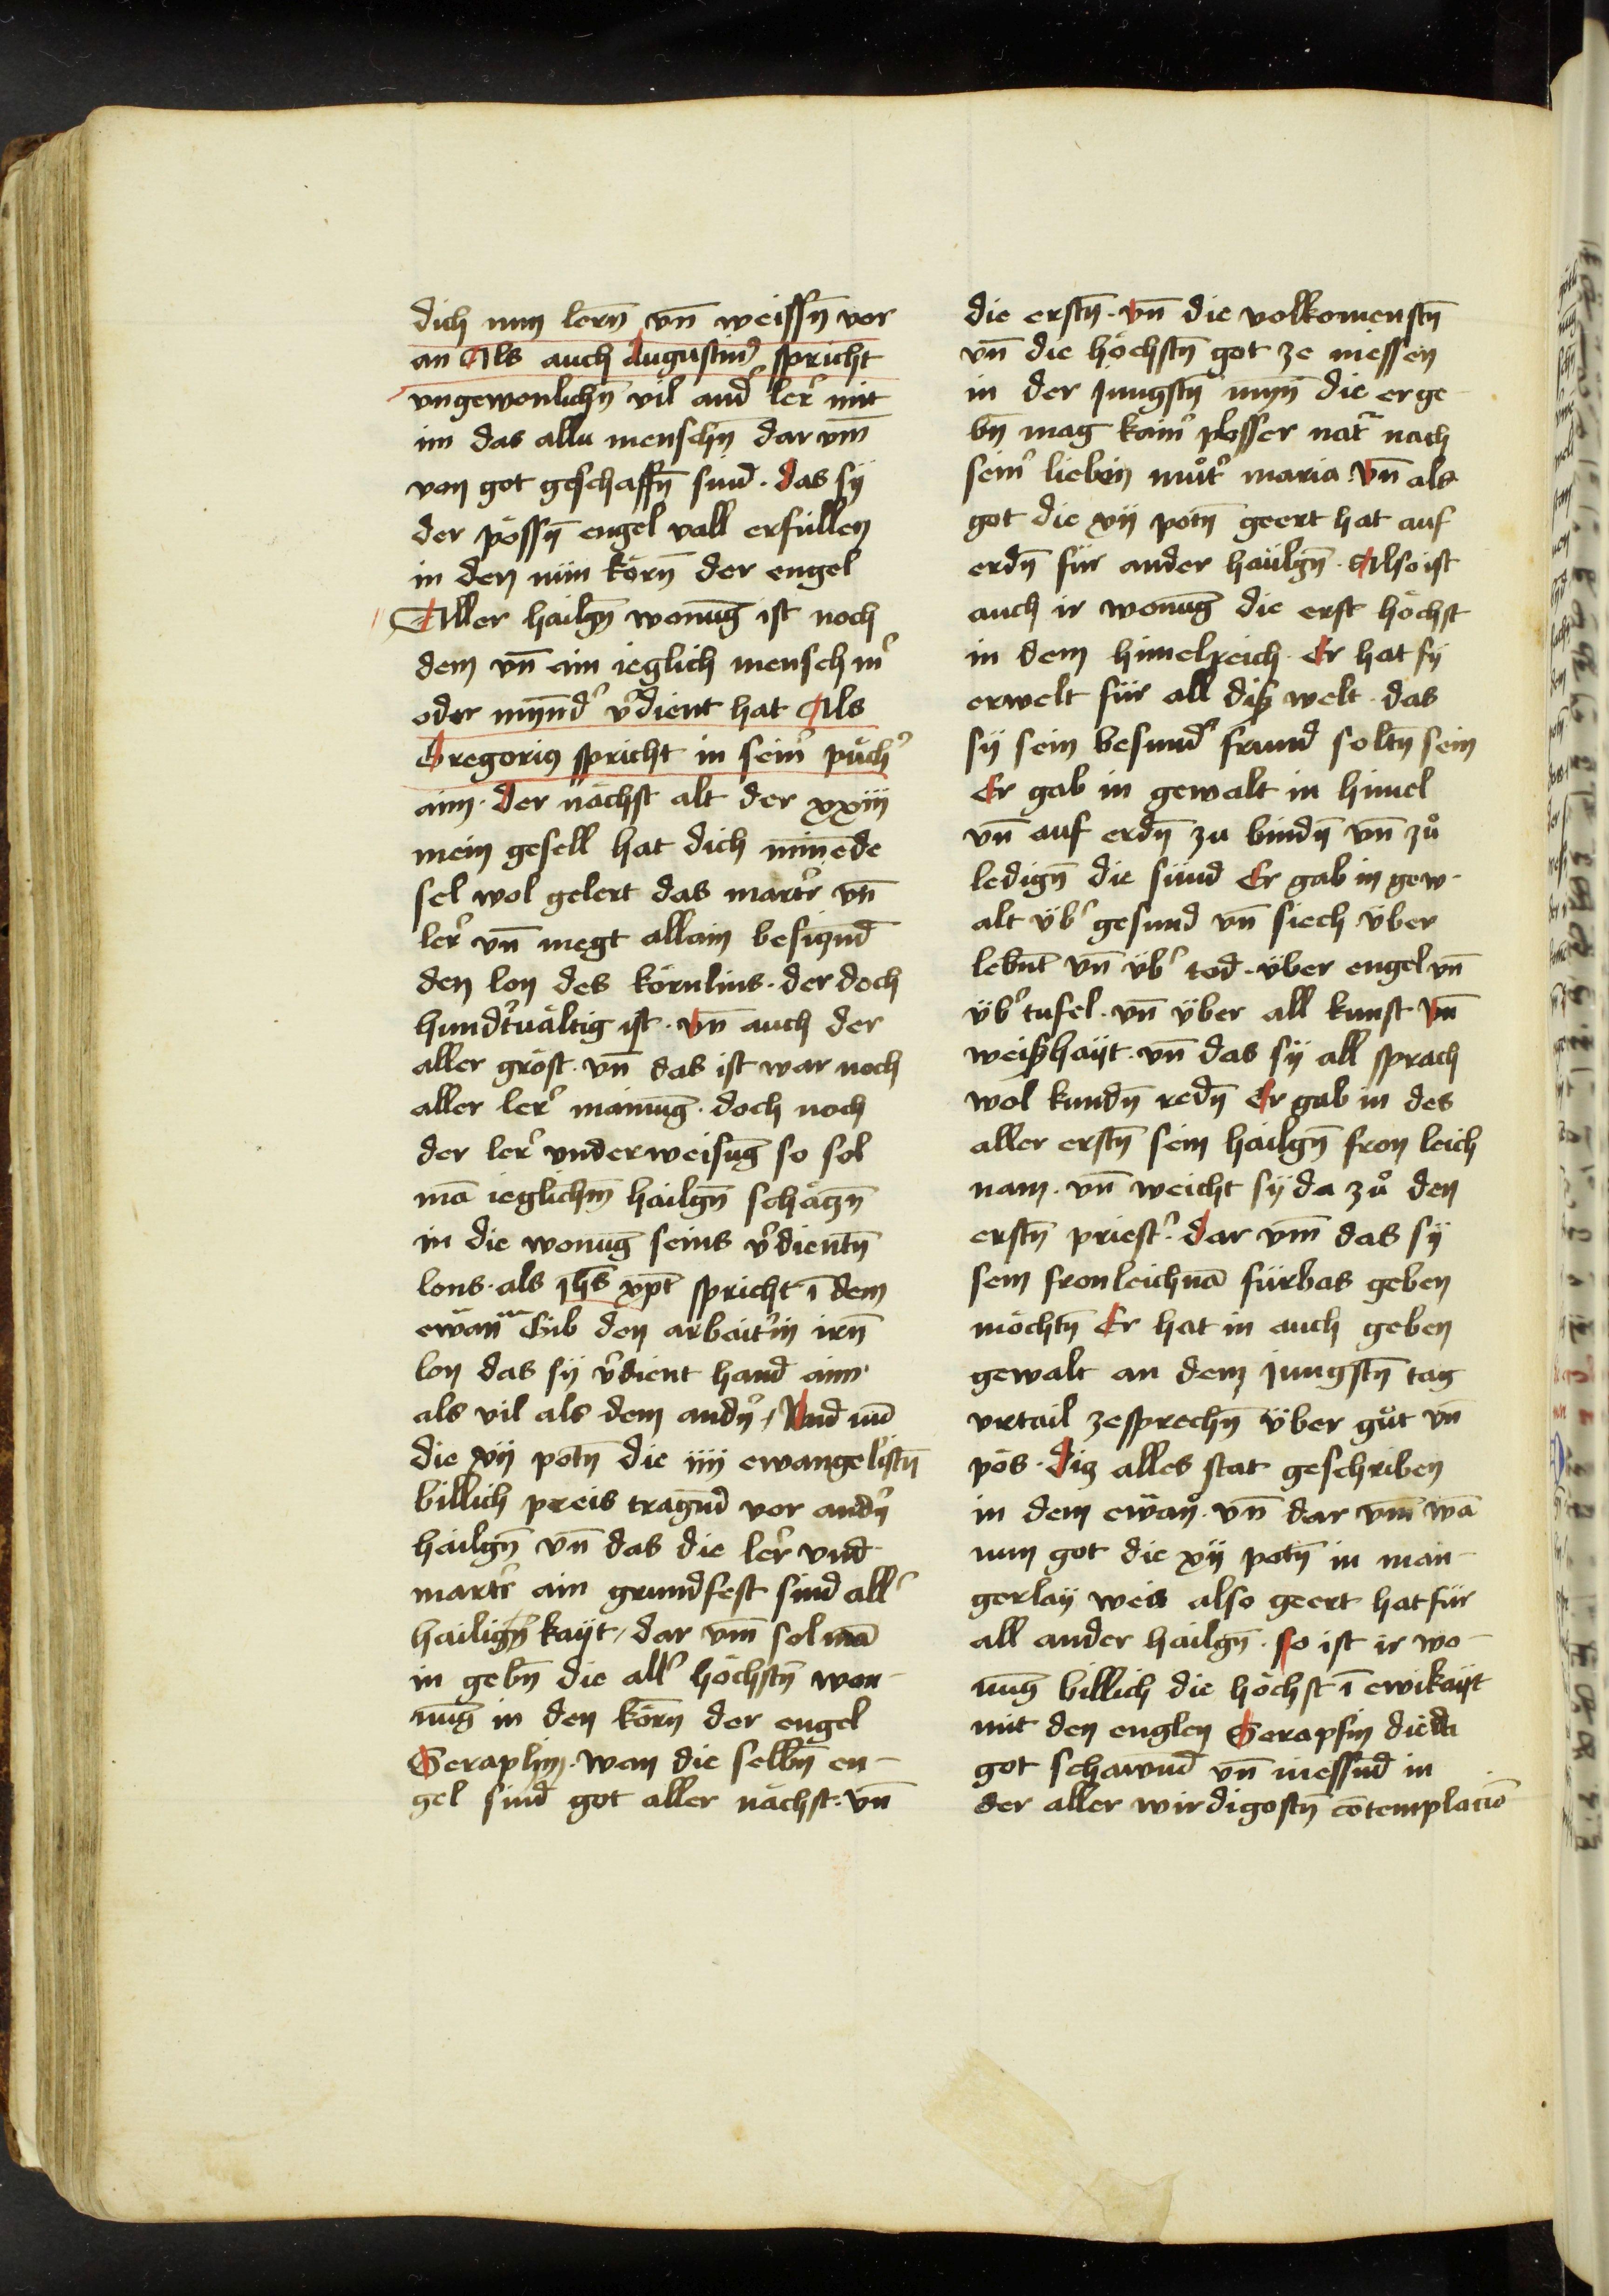 dich nun lern̄ vn̄ weissn̄ vor
an Als auch Augustin9 spricht
vngewonlichn̄ vil and̓ ler̓ mit
im das allu menschn̄ dar vm̄
von got geschaffn̄ sind · das sÿ
der pössn̄ engel vall erfüllen
in den nün körn̄ der engel
Aller hailgn̄ wonūg ist noch
dem vn̄ ain ieglich mensch m̓
oder mynnd̓ v̓dient hat Als
Gregorius spricht in seim̓ půch̓
aim · Der nächst alt der xxiiij
mein gesell hat dich min̄ede
sel wol gelert das mart̓r vn̄
ler̓ vn̄ megt allain besiczn̄d
den lon des körnlins · der doch
hund̓tuältig ist · vn̄ auch der
aller gröst · vn̄ das ist war noch
aller ler̓ mainūg · doch noch
der ler̓ vnderweisūg so sol
mā ieglichm̄ hailgn̄ schäczn̄
in die wonūg seins v̓dientn̄
lons · als ih̄s xp̄t spricht ī dem
ewan̄ Gib den arbeit̓in irn̄
lon das sÿ v̓dient hand aim
als vil als dem andn̓ / Vnd nūd
die xij potn̄ die iiij ewangelistn̄
billich preis tragn̄d vor andn̓
hailgn̄ vn̄ das die ler̓ vnd
mart̓r ain grundfest sind all̓
hailign̄kayt / dar vm̄ sol mā
in gebn̄ die all̓ höchstn̄ won-
nūg in den körn̄ der engel
Seraphin · wan die selbn̄ en-
gel sind got aller nächst · vn̄
die erstn̄ · vn̄ die volkomenstn̄
vn̄ die höchstn̄ got ze niessen
in der jungstn̄ mynn̄ die erge
bn̄ mag kaim̓ plosser nat̓ nach
seim̓ liebin můt̓ maria · Vn̄ als
got die xij potn̄ geert hat auf
erdn̄ für ander hailgn̄ · Also ist
auch ir wonūg die erst höchst
in dem himelreich · Er hat sÿ
erwelt für all diß welt · das
sÿ sein besund̓ frund soltn̄ sein
Er gab in gewalt in himel
vn̄ auf erdn̄ zu bindn̄ vn̄ zů
ledign̄ die sünd Er gab in gew-
alt üb̓ gesund vn̄ siech über
lebn̄t vn̄ üb̓ tod · über engel vn̄
üb̓ tufel · vn̄ über all kunst vn̄
weißhaÿt · vn̄ das sÿ all sprach
wol kundn̄ redn̄ Er gab in des
aller erstn̄ sein hailgn̄ fron leich
nam · vn̄ weicht sÿ da zů den
erstn̄ priest̓ · dar vm̄ das sÿ
sein fronleichnā fürbas geben
möchtn̄ Er hat in auch geben
gewalt an dem jungstn̄ tag
vrtail zesprechn̄ über gůt vn̄
pös · Diz alles stat geschriben
in dem ewan̄ · vn̄ dar vm̄ wā
nun got die xij potn̄ in man-
gerlaÿ weis also geert hat für
all ander hailgn̄ · so ist ir wo-
nūg billich die höchst ī ewikaÿt
mit den englen Serapfin die da
got schawn̄d vn̄ niessn̄d in
der aller wirdigostn̄ cōtemplaciō